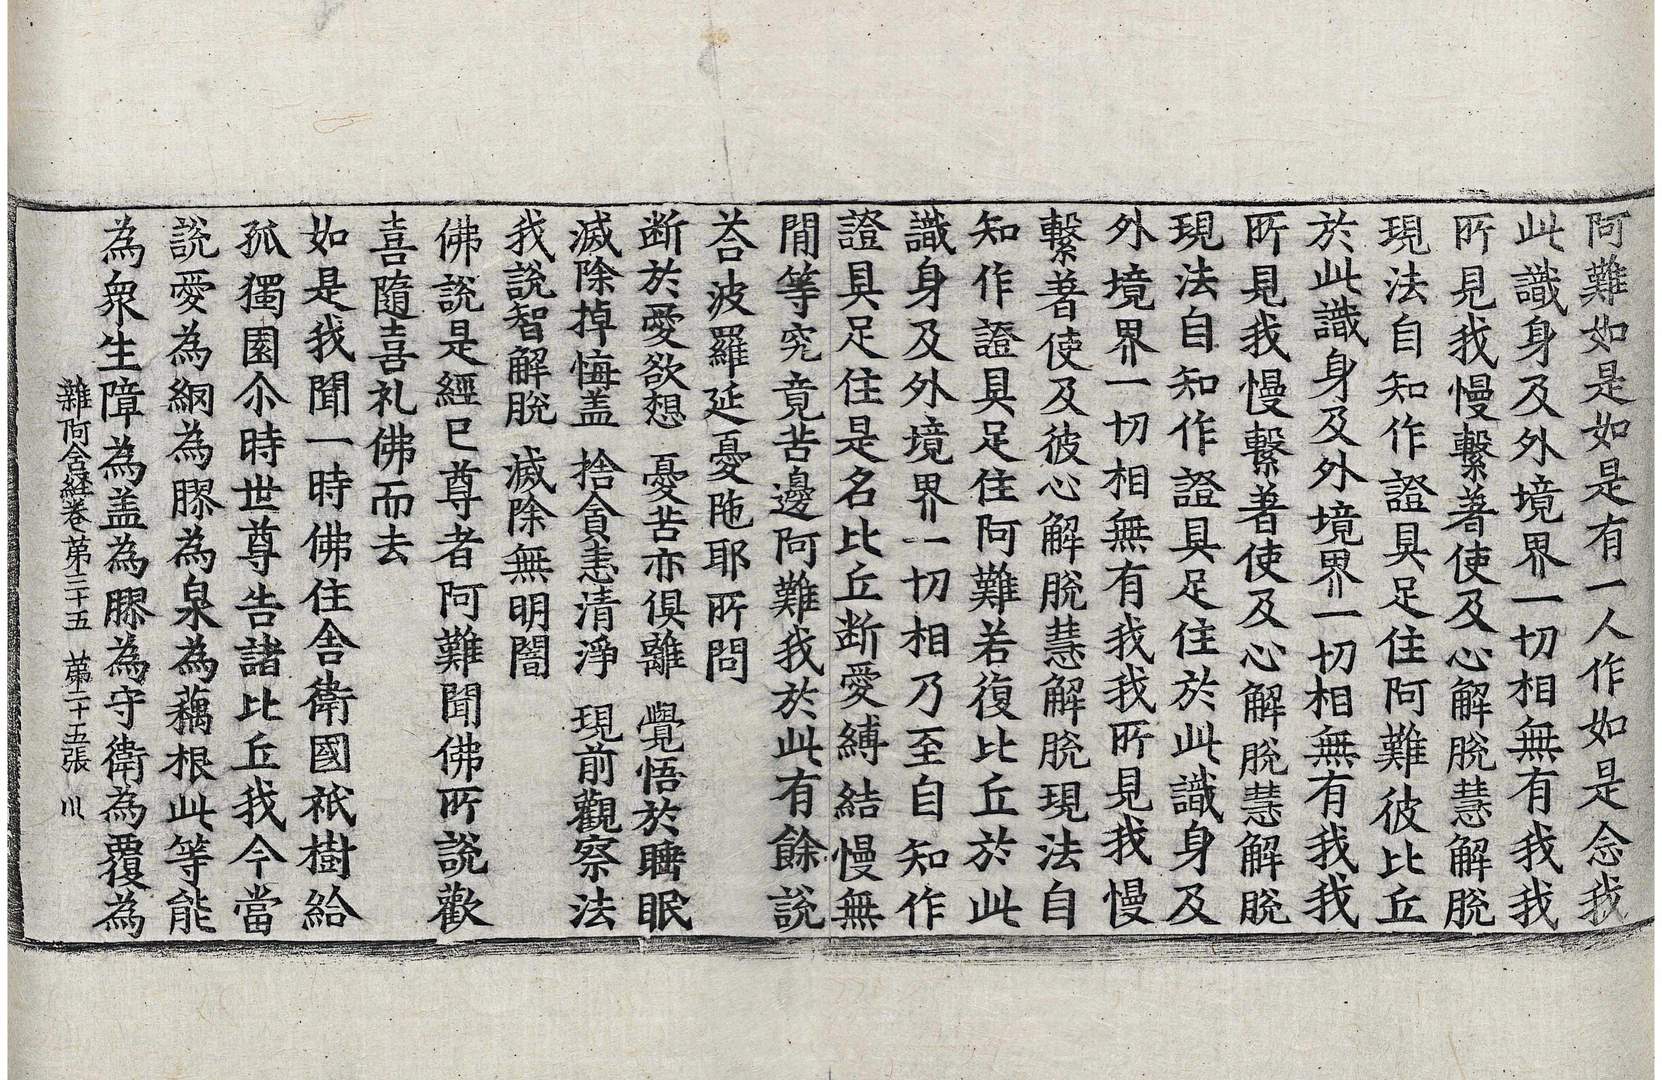 阿難如是如是有一人作如是念我
此識身及外境界一切相無有我我
所見我慢繫著使及心解脫慧解脫
現法自知作證具足住阿難彼比丘
於此識身及外境界一切相無有我我
所見我慢繫著使及心解脫慧解脫
現法自知作證具足住於此識身及
外境界一切相無有我我所見我慢
繫著使及彼心解脫慧解脫現法自
知作證具足住阿難若復比丘於此
識身及外境界一切相乃至自知作
證具足住是名比丘断愛縛結慢無
閒等究竟苦邊阿難我於此有餘說
荅波羅延憂陁耶所問
断於愛欲想　憂苦亦俱離　覺悟於睡眠
滅除掉悔盖　捨貪恚清淨　現前觀察法
我說智解脫　滅除無明闇
佛說是經已尊者阿難聞佛所說歡
喜隨喜礼佛而去
如是我聞一時佛住舍衛國祇樹給
孤獨園尒時世尊告諸比丘我今當
說愛為網為膠為泉為藕根此等能
為衆生障為盖為膠為守衛為覆為
雜阿含経卷第三十五　第二十五張　川